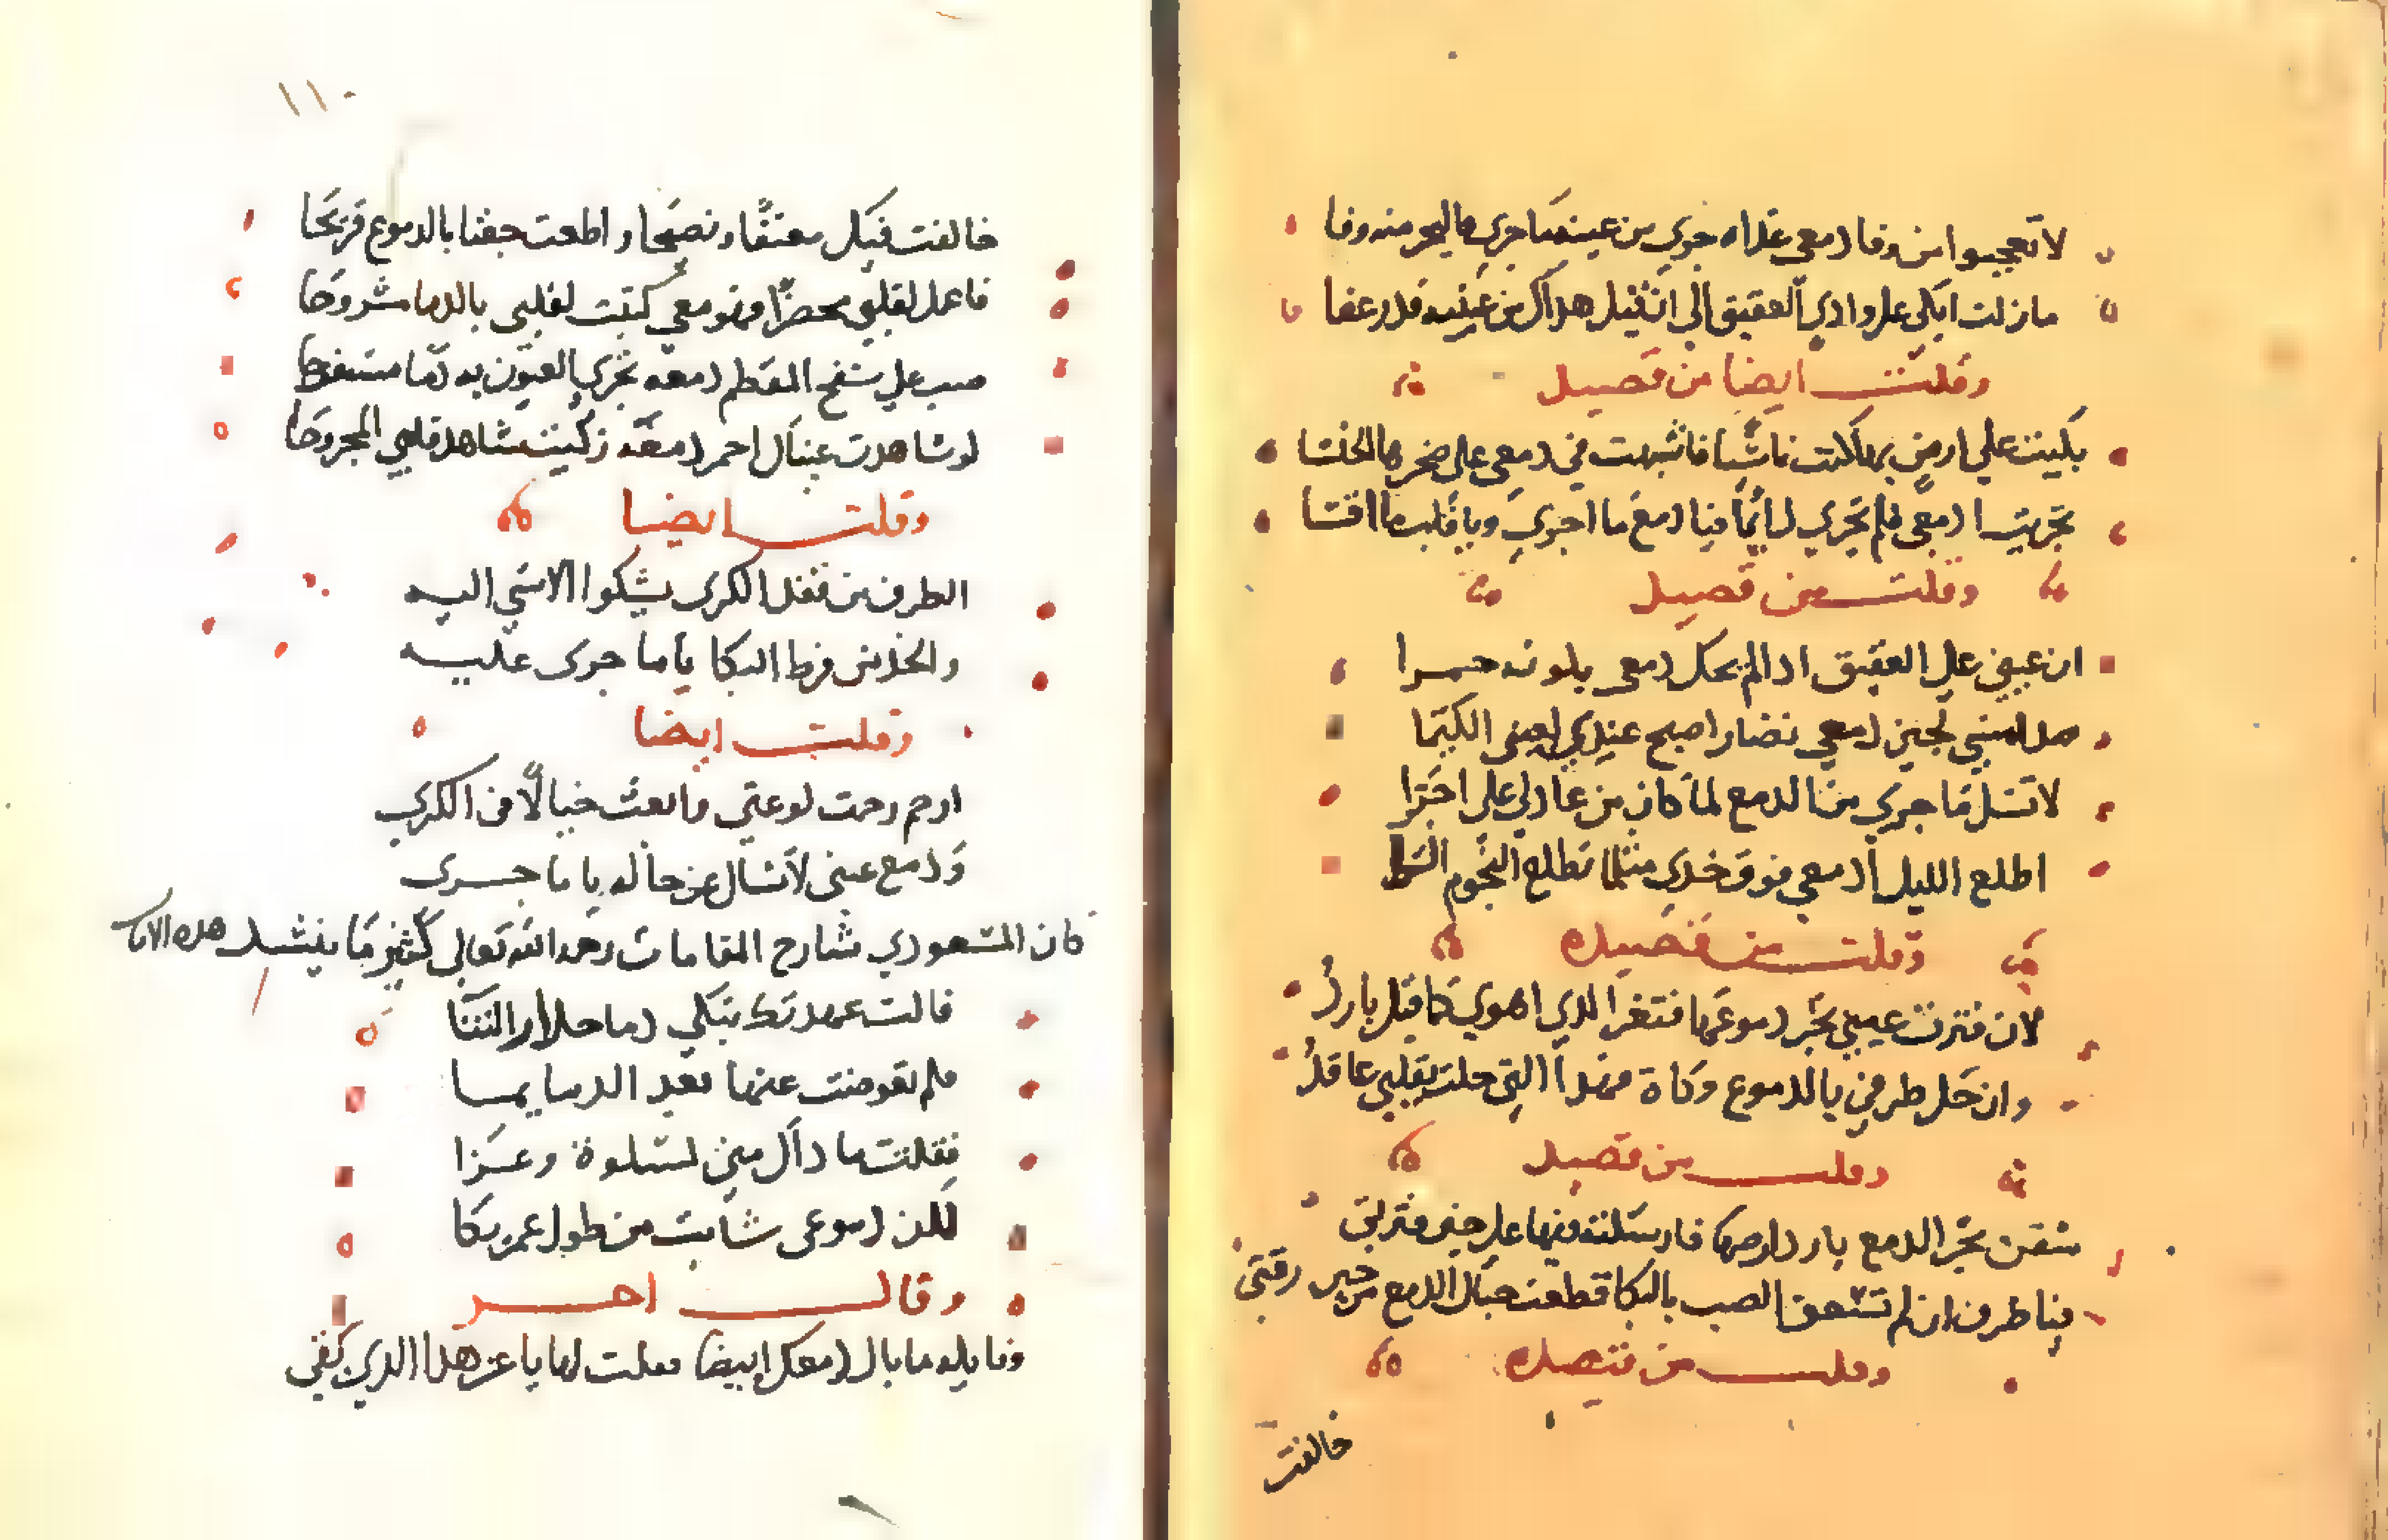 لا تعجبوا من وفا دمعي غداه جرى من عينه ما جرى فالبحر منه وفا
ما زلت ابكي على وادي العقيق الى ان قيل هداك من عينيه قد رعفا
وقلت ايضا من قصيد
بكيت على ارض بها كنت ناشيا فاشبهت في دمعي على صخرها الخنسا
تجريت ادمعي فلم تجري دايما فيا دمع ما اجري ويا قلب ما اقسا
وقلت من قصيد
ان عيني على العقيق ادا لم يحك دمعي بلونه حمرا
لجين دمعي نضارا صبح عندي الكيميا
لا تسل ما جرى من الدمع لما كان من عادلي على اجترا
اطلع الليل ادمعي فوق خدي مثلما تطلع النجوم السما
وقلت من قصيده
لان فترت عيني بحر دموعها فثغر الدي اهوى كما قيل بارد
وان حل طرفي بالدموع وكاه فهدا التي حلت بقلبي عاقد
وقلت من قصيد
سقت بحر الدمع بارد ارضها فارسلته فيها على حين فترتي
فيا طرف ان لم تسعف الصب بالبكا قطعت حبال الدمع من حين رقتي
وقلت من قصيده
خالفت
١١٠
خالفت فيك معنفا ونصيحا واطعت جفنا بالدموع قريحا
فاعمل لقلبي محضرا فهو معي كتبت لقلبي بالدما مشروحا
صب على سفح المقطم دمعه تجري العيون به دما مسفوحا
لو شاهدت عيناك احمر دمعه زكيت شاهد قلبي المجروحا
وقلت ايضا
الطرف من فقد الكرى يشكوا الاسى اليه
والخد من فرط البكا يا ما جرى عليه
وقلت ايضا
ارحم رحمت لوعتي وابعث خيالا في الكرى
ودمع عيني لا تسال عن حاله يا ما جرى
كان المسعودي شارح المقامات رحمه الله تعالى كثير ما ينشد هده الابيات
قالت عهدتك تبكي دما حدار التنا
فلم تعوضت عنها بعد الدما بما
فقلت ما داك مني لسلوة وعزا
لكن دموعي شابت من طول عمر بكا
وقال اخر
وقايله ما بال دمعك ابيضا فقلت لها يا عز هدا الدي بقي